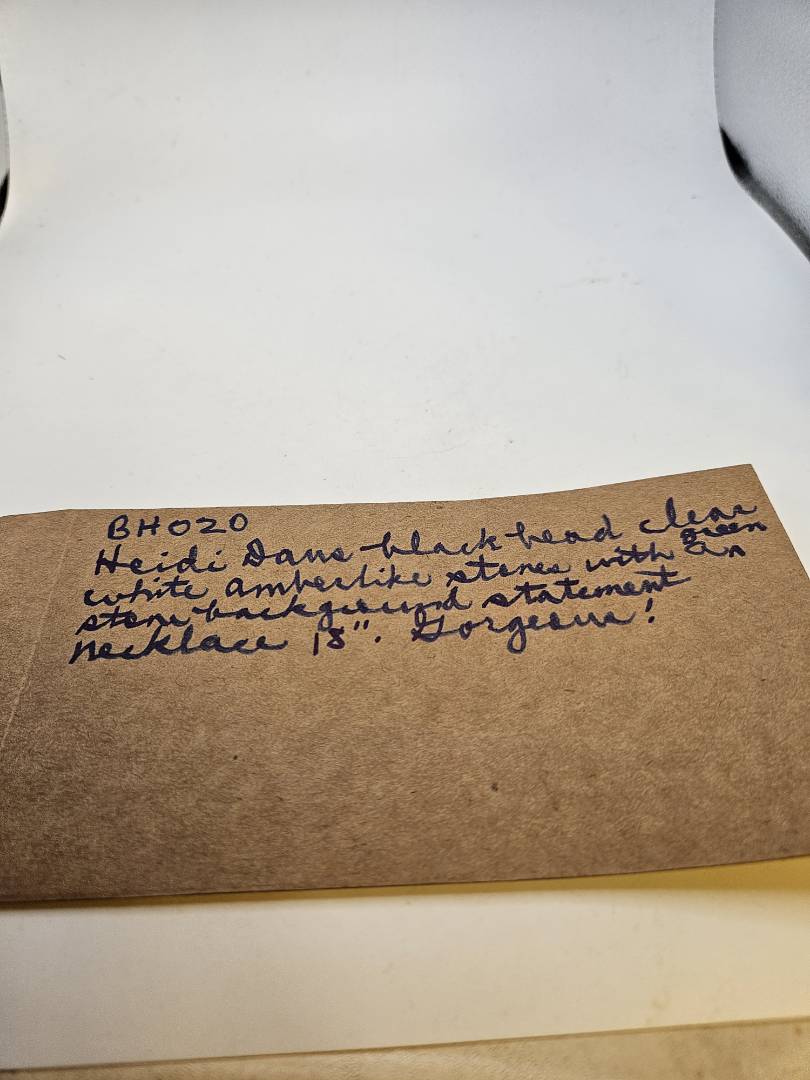 BH020
Heidi Daus black bead clear
white amberlike stones with green an
stone background statement
necklace 18". Gorgeous!